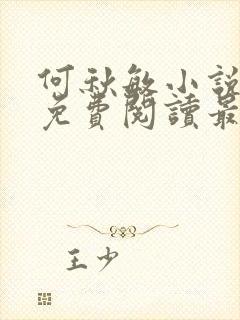 何秋敏小說
免費閱讀最
王少